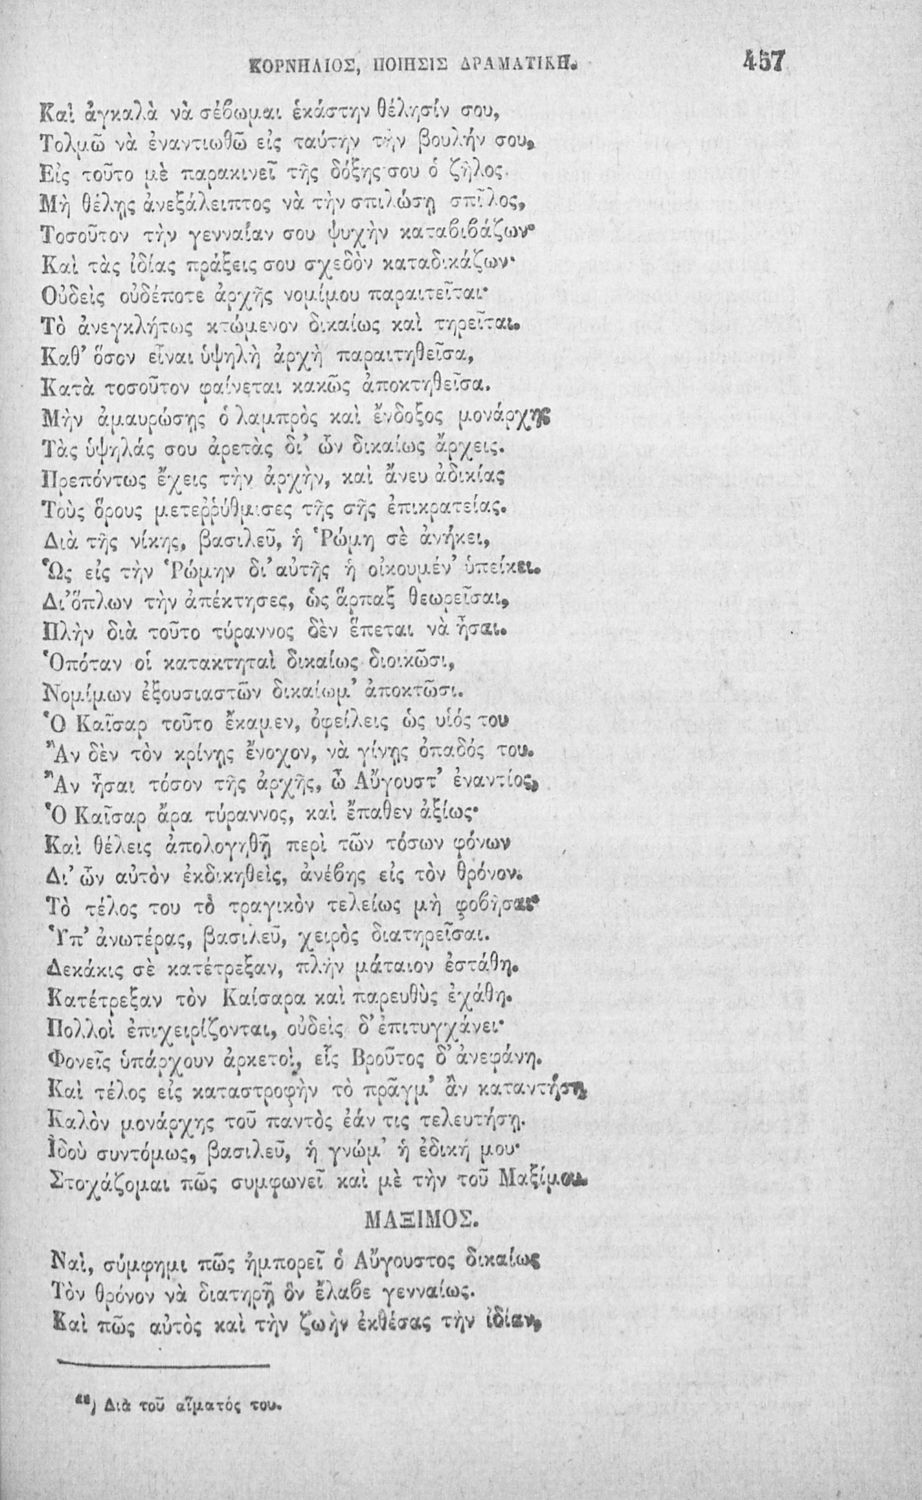 ΚΟΡΝΗΛΙΟΣ, ΠΟΙΗΣΙΣ ΔΡΑΜΑΤΙΚΗ. 457
Καὶ ἀγκαλὰ νὰ σέβωμαι ἑκάστην θέλησίν σου,
Τολμῶ νὰ ἐναντιωθῶ εἰς ταύτην τὴν βουλήν σου,
Εἰς τοῦτο μὲ παρακινεῖ τῆς δόξης σου ὁ ζῆλος.
Μὴ θέλῃς ἀνεξάλειπτος νὰ τὴν σπιλώσῃ σπῖλος,
Τοσοῦτον τὴν γενναίαν σου ψυχὴν καταβιβάζων·
Καὶ τὰς ἰδίας πράξεις σου σχεδὸν καταδικάζων·
Οὐδεὶς οὐδέποτε ἀρχῆς νομίμου παραιτεῖται·
Τὸ ἀνεγκλήτως κτώμενον δικαίως καὶ τηρεῖται.
Καθ’ ὅσον εἶναι ὑψηλὴ ἀρχὴ παραιτηθεῖσα,
Κατὰ τοσοῦτον φαίνεται κακῶς ἀποκτηθεῖσα.
Μὴν ἀμαυρώσῃς ὁ λαμπρὸς καὶ ἔνδοξος μονάρχης
Τὰς ὑψηλάς σου ἀρετὰς δι’ ὧν δικαίως ἄρχεις.
Πρεπόντως ἔχεις τὴν ἀρχὴν, καὶ ἄνευ ἀδικίας
Τοὺς ὅρους μετεῤῥύθμισες τῆς σῆς ἐπικρατείας.
Διὰ τῆς νίκης, βασιλεῦ, ἡ Ῥώμη σὲ ἀνήκει,
Ὡς εἰς τὴν Ῥώμην δι’ αὐτῆς ἡ οἰκουμέν’ ὑπείκει.
Δι’ ὅπλων τὴν ἀπέκτησες, ὡς ἅρπαξ θεωρεῖσαι,
Πλὴν διὰ τοῦτο τύραννος δὲν ἕπεται νὰ ἦσαι.
Ὁπόταν οἱ κατακτηταὶ δικαίως διοικῶσι,
Νομίμων ἐξουσιαστῶν δικαίωμ’ ἀποκτῶσι.
Ὁ Καῖσαρ τοῦτο ἔκαμεν, ὀφείλεις ὡς υἱός του
Ἂν δὲν τὸν κρίνῃς ἔνοχον, νὰ γίνῃς ὀπαδός του.
Ἂν ἦσαι τόσον τῆς ἀρχῆς, ὦ Αὔγουστ’ ἐναντίος,
Ὁ Καῖσαρ ἄρα τύραννος, καὶ ἔπαθεν ἀξίως·
Καὶ θέλεις ἀπολογηθῇ περὶ τῶν τόσων φόνων
Δι’ ὧν αὐτὸν ἐκδικηθεὶς, ἀνέβης εἰς τὸν θρόνον.
Τὸ τέλος του τὸ τραγικὸν τελείως μὴ φοβῆσαι·
Ὑπ’ ἀνωτέρας, βασιλεῦ, χειρὸς διατηρεῖσαι.
Δεκάκις σὲ κατέτρεξαν, πλὴν μάταιον ἐστάθη.
Κατέτρεξαν τὸν Καίσαρα καὶ παρευθὺς ἐχάθη.
Πολλοὶ ἐπιχειρίζονται, οὐδεὶς δ’ ἐπιτυγχάνει·
Φονεῖς ὑπάρχουν ἀρκετοὶ, εἷς Βροῦτος δ’ ἀνεφάνη.
Καὶ τέλος εἰς καταστροφὴν τὸ πρᾶγμ’ ἂν καταντήσῃ,
Καλὸν μονάρχης τοῦ παντὸς ἐάν τις τελευτήσῃ.
Ἰδοὺ συντόμως, βασιλεῦ, ἡ γνώμ’ ἡ ἐδική μου·
Στοχάζομαι πῶς συμφωνεῖ καὶ μὲ τὴν τοῦ Μαξίμου.
ΜΑΞΙΜΟΣ.
Ναὶ, σύμφημι πῶς ἠμπορεῖ ὁ Αὔγουστος δικαίως
Τὸν θρόνον νὰ διατηρῇ ὃν ἔλαβε γενναίως.
Καὶ πῶς αὐτὸς καὶ τὴν ζωὴν ἐκθέσας τὴν ἰδίαν,
) Διὰ τοῦ αἵματός του.